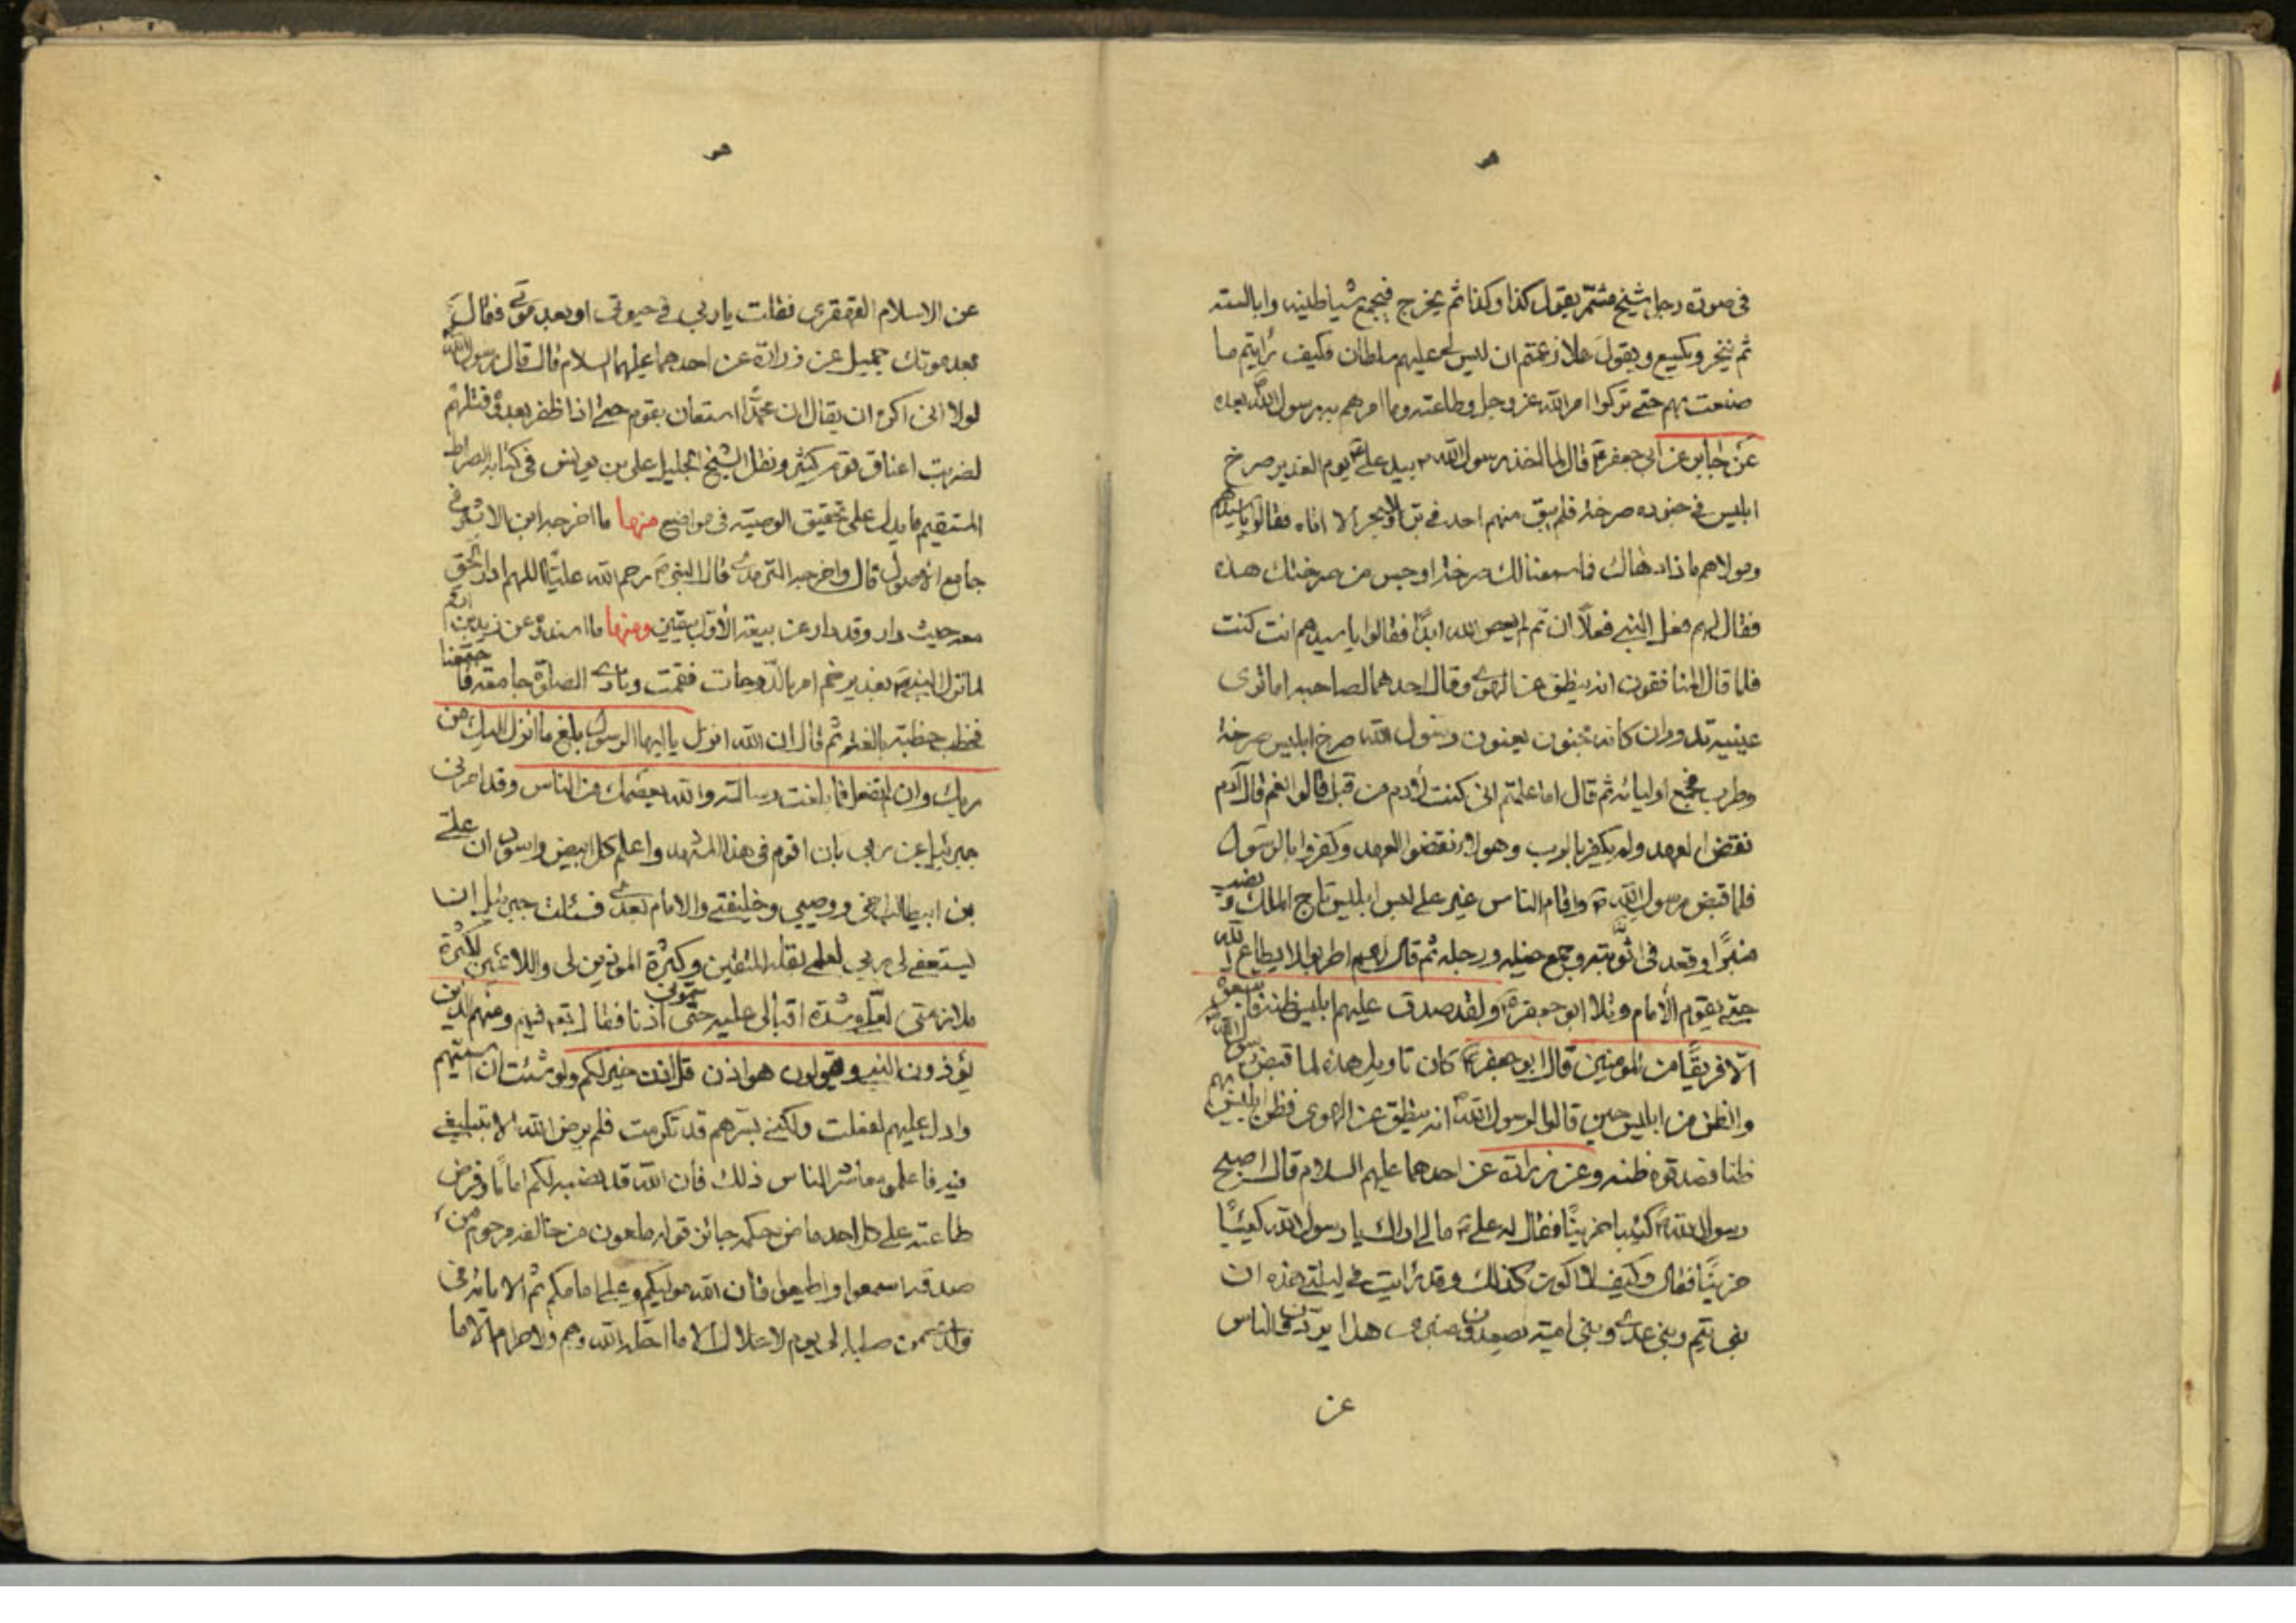 هو
في صورة رجل شيخ مشمّر يقول كذا وكذا ثم يخرج فيجمع شياطينه وابالسته
ثم ينخر ويكسع ويقول كلا زعمتم ان ليس لي عليهم سلطان فكيف رأيتم ما
صنعت بهم حتى تركوا امر الله عز وجل وطاعته وما امرهم به رسول الله بعده
عن جابر عن ابي جعفر ع قال لما اخذ رسول الله ص بيد علي ع يوم الغدير صرخ
ابليس في جنوده صرخة فلم يبق منهم احد في بر ولا بحر الا اتاه فقالوا يا سيدهم
ومولاهم ماذا دهاك فما سمعنا لك صرخة اوحش من صرختك هذه
فقال لهم فعل النبي فعلا ان تم لم يعص الله ابدًا فقالوا يا سيدهم انت كنت
فلما قال المنافقون انه ينطق عن الهوى وقال احدهما لصاحبه اما ترى
عينيه تدوران كانه مجنون يعنون رسول الله صرخ ابليس صرخة
وطرب فجمع اوليائه ثم قال اما علمتم اني كنت لآدم من قبل قالوا نعم قال آدم
نقض العهد ولم يكفر بالرب وهؤلاء نقضوا العهد وكفروا بالرسول
فلما قبض رسول الله ص واقام الناس غير علي لبس ابليس تاج الملك ونصب
منبرًا وقعد في وجمع خيله ورجله ثم قال لهم اطربوا لا يطاع الله
حتى يقوم الامام وتلا ابو جعفر ع ولقد صدق عليهم ابليس ظنه فاتبعوه
الا فريقًا من المؤمنين قال ابو جعفر ع كان تاويل هذه لما قبض رسول الله
والظن من ابليس حين قالوا لرسول الله ص انه ينطق عن الهوى فظن بهم ابليس
ظنا فصدقوه ظنه وعن زرارة عن احدهما عليهم السلام قال اصبح
رسول الله ص كئيبا حزينًا فقال له علي ع ما لي اراك يا رسول الله كئيبًا
حزينًا فقال وكيف لا اكون كذلك وقد رايت في ليلتي هذه ان
بني تيم وبني عدي وبني امية يصعدون منبري هذا يردون الناس
عن
هو
عن الاسلام القهقرى فقلت يا ربي في حيوتي او بعد موتي فقال
بعد موتك جميل عن زرارة عن احدهما عليهما السلام قال قال رسول الله
لولا اني اكره ان يقال ان محمدًا استعان بقوم حتى اذا ظفر بعدوه قتلهم
لضربت اعناق قوم كثير ونقل الشيخ الجليل علي بن يونس في كتابه الصراط
المستقيم ما يدل على تحقيق الوصية في مواضع منها ما اخرجه ابن الاثير في
جامع الاصول قال واخرجه الترمذي قال النبي ص رحم الله عليًا اللهم ادر الحق
معه حيث دار وقد دار عن بيعة الأول بيقين ومنها ما اسندوه عن زيد بن ارقم
لما نزل النبي ص بغدير خم امر بالدوحات فقمت ونادى الصلوة جامعة فاجتمعنا
فخطب خطبة بالغة ثم قال ان الله انزل يا ايها الرسول بلغ ما انزل اليك من
ربك وان لم تفعل فما بلغت رسالته والله يعصمك من الناس وقد امرني
جبرئيل عن ربي بان اقوم في هذا المشهد واعلم كل ابيض واسود ان علي
بن ابيطالب اخي ووصيي وخليفتي والامام بعدي فسئلت جبرئيل ان
يستعفى لي ربي لعلمي بقلة المتقين وكثرة الموذين لي واللائمين لكثرة
ملازمتي لعلي وشدة اقبالي عليه حتى سموني اذنا فقال تعالى فيهم ومنهم الذين
يؤذون النبي ويقولون هو اذن قل اذن خير لكم ولو شئت ان اسميهم
وادل عليهم لفعلت ولكني بسرهم قد تكرمت فلم يرض الله الا بتبليغي
فيه فاعلموا معاشر الناس ذلك فان الله قد نصبه لكم امامًا وفرض
طاعته على كل احد ماض حكمه جائز قوله ملعون من خالفه مرحوم من
صدقه اسمعوا واطيعوا فان الله موليكم وعلي امامكم ثم الامامة في
ولدي من صلبه الى يوم لا حلال الا ما احله الله وهم ولا حرام الا ما